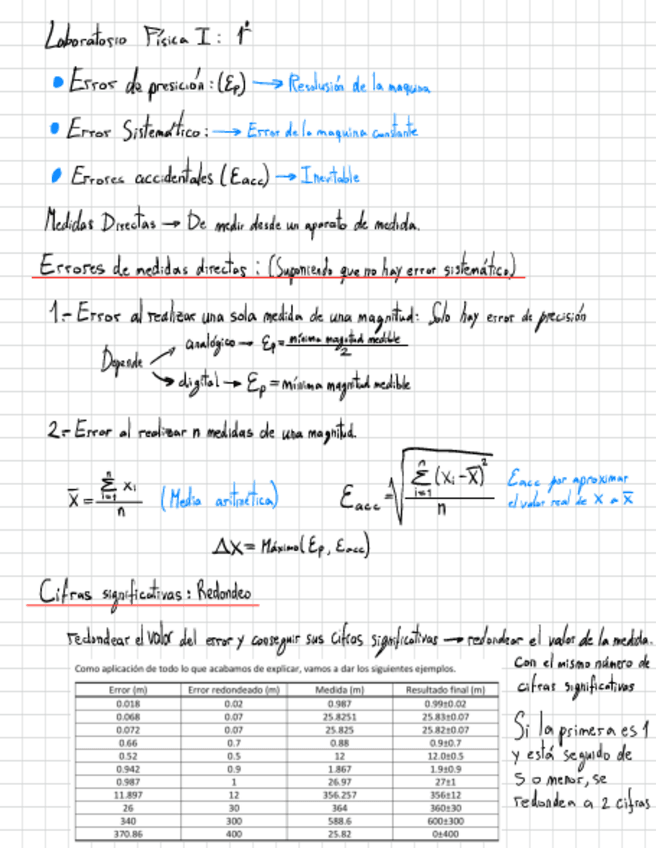 Laboratorio Física I: 1ª
• Error de presición: (Ep) → Resolusión de la maquina
• Error Sistemático: → Error de la maquina constante
• Errores accidentales (Eacc) → Inevitable
Medidas Directas → De medir desde un aparato de medida.
Errores de medidas directas: (Suponiendo que no hay error sistemático)
1.- Error al realizar una sola medida de una magnitud: Solo hay error de precisión
Depende
analógico → Ep = mínima magnitud medible / 2
digital → Ep = mínima magnitud medible
2.- Error al realizar n medidas de una magnitud.
x̄ = Σ(i=1 → n) xi / n (Media aritmética)
Eacc = √(Σ(i=1 → n) (xi - x̄)² / n)
Eacc por aproximar
el valor real de X a x̄
Δx = Máximo(Ep, Eacc)
Cifras significativas: Redondeo
redondear el valor del error y conseguir sus cifras significativas → redondear el valor de la medida.
Con el mismo número de
cifras significativas
Si la primera es 1
y está seguido de
5 o menor, se
redondea a 2 cifras
Como aplicación de todo lo que acabamos de explicar, vamos a dar los siguientes ejemplos.
Error (m) Error redondeado (m) Medida (m) Resultado final (m)
0.018 0.02 0.987 0.99±0.02
0.068 0.07 25.8251 25.83±0.07
0.072 0.07 25.825 25.82±0.07
0.66 0.7 0.88 0.9±0.7
0.52 0.5 12 12.0±0.5
0.942 0.9 1.867 1.9±0.9
0.987 1 26.97 27±1
11.897 12 356.257 356±12
26 30 364 360±30
340 300 588.6 600±300
370.86 400 25.82 0±400